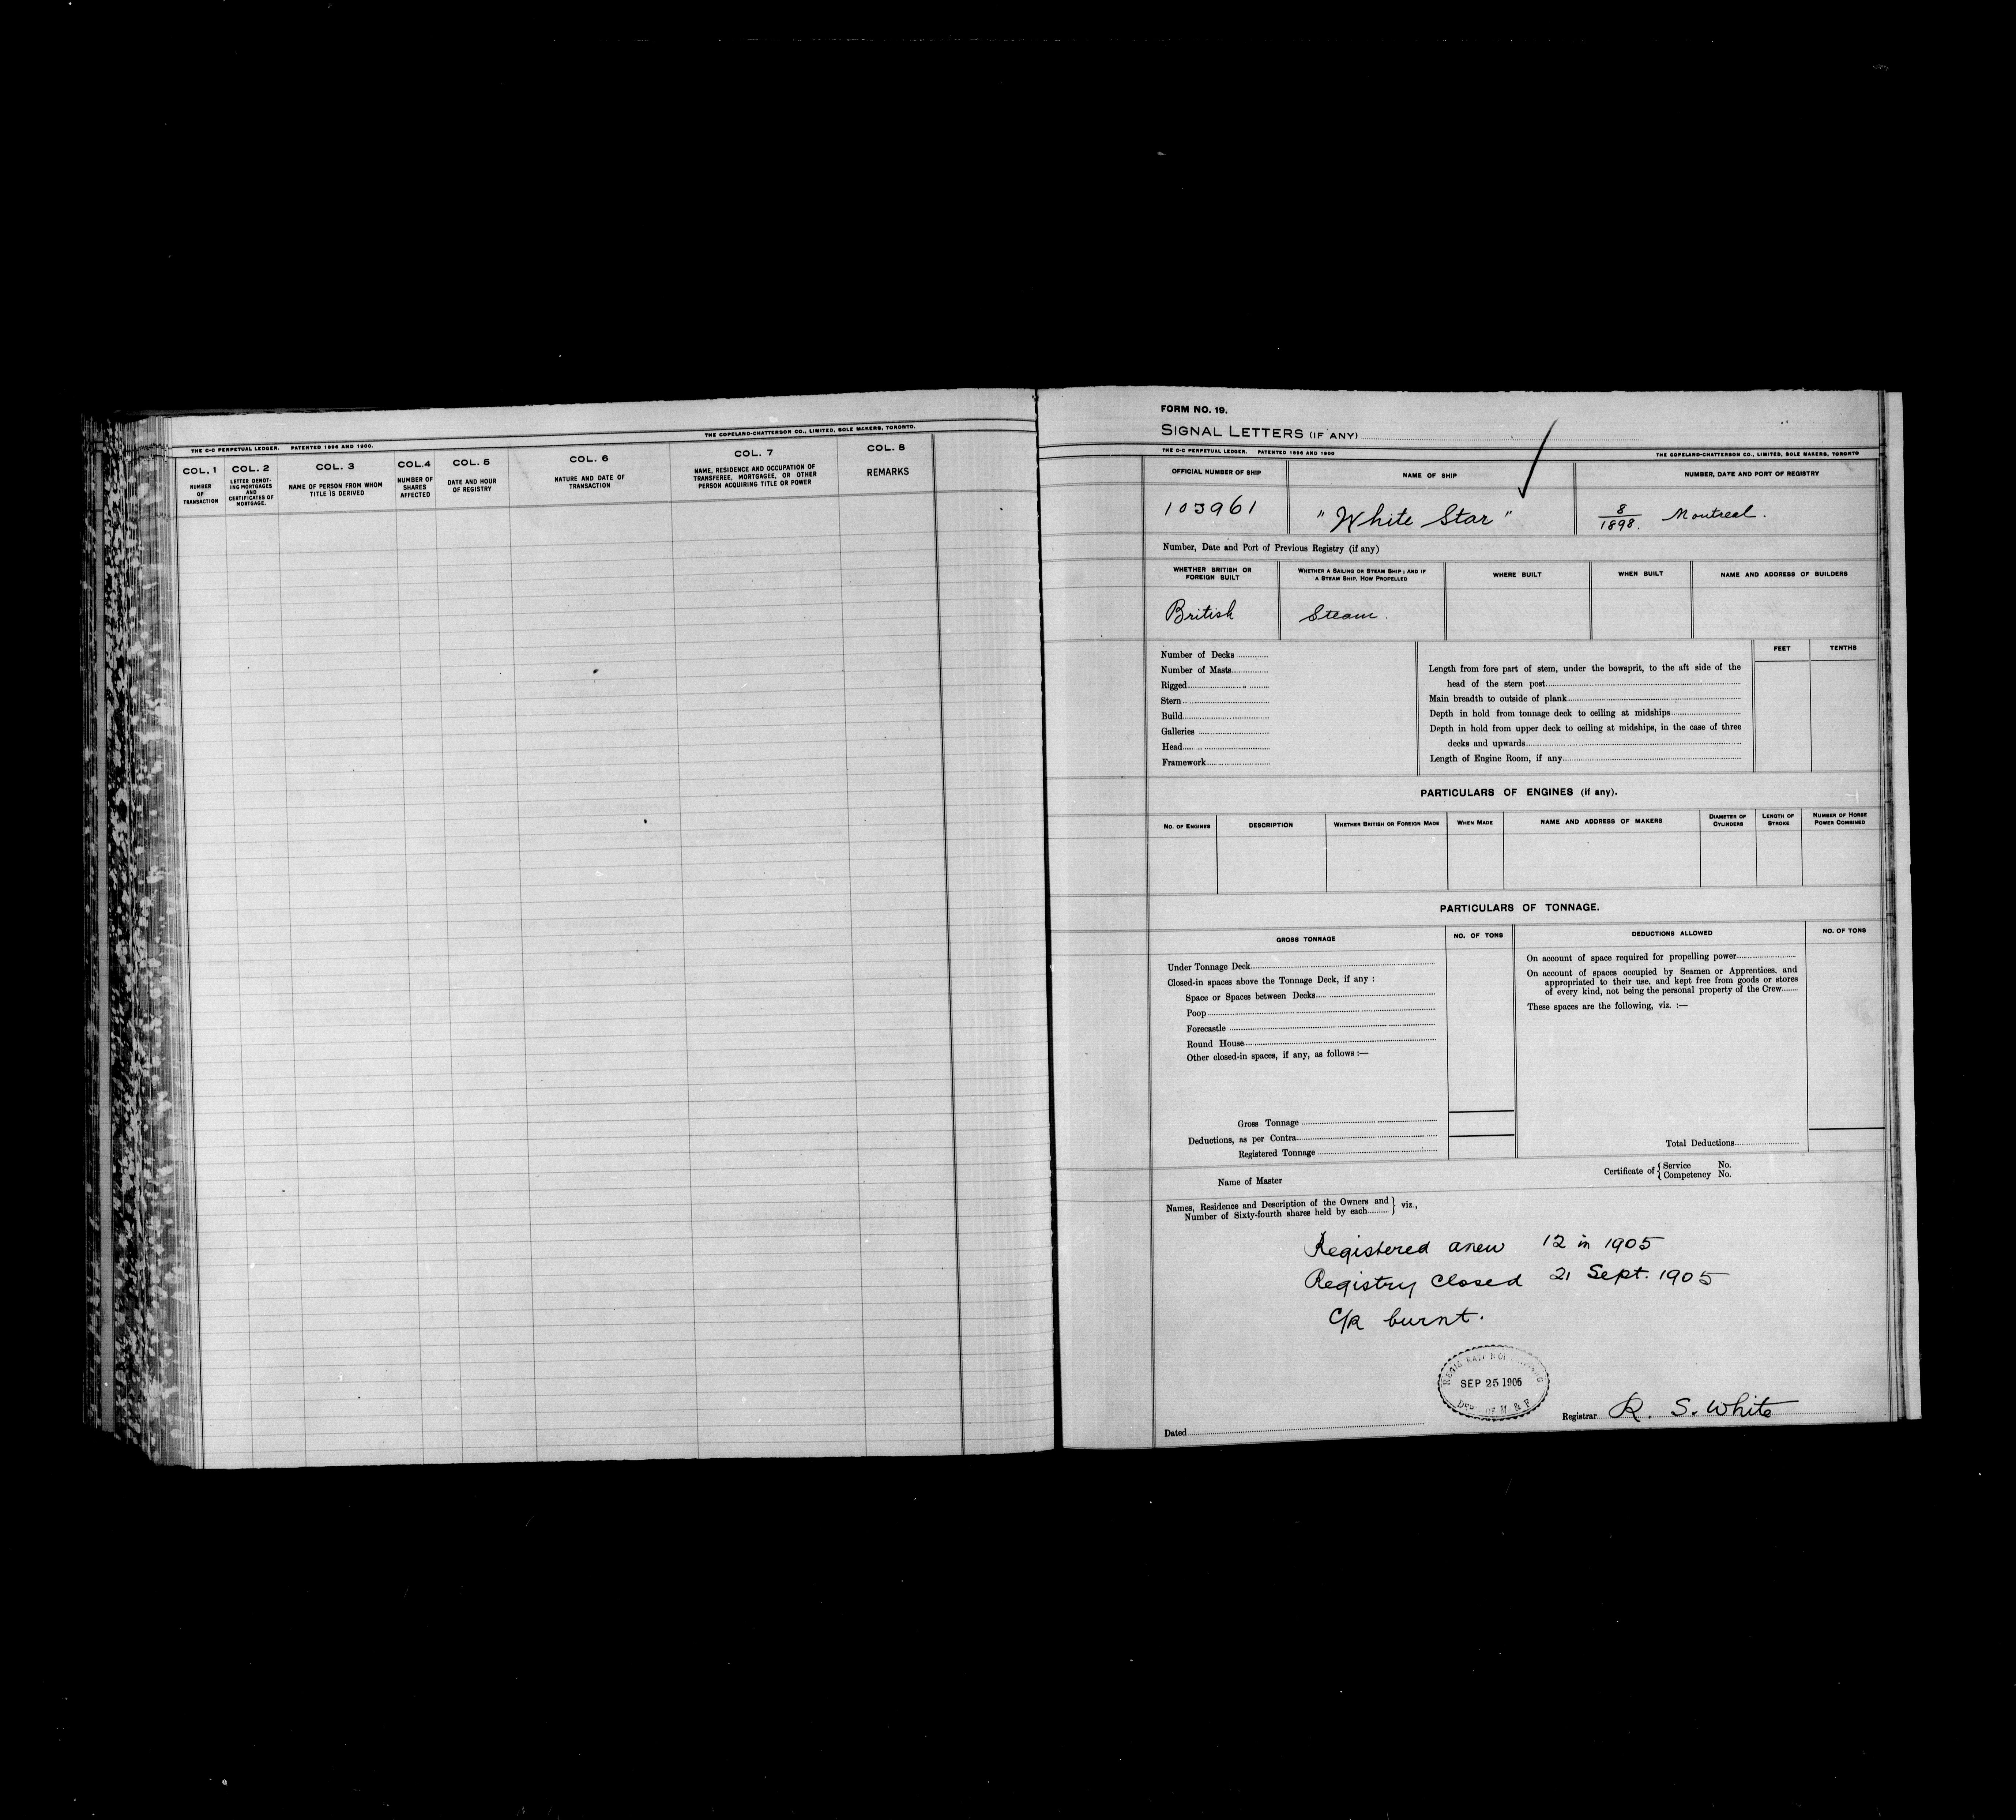 THE C-C PERPETUAL LEDGER. PATENTED 1896 AND 1900. THE COPELAND-CHATTERSON CO., LIMITED, SOLE MAKERS, TORONTO.
COL. 1 COL. 2 COL. 3 COL. 4 COL. 5 COL. 6 COL. 7 COL. 8
NUMBER OF TRANSACTION
LETTER DENOT-
ING MORTGAGES
AND
CERTIFICATES OF
MORTGAGE.
NAME OF PERSON FROM WHOM
TITLE IS DERIVED
NUMBER OF
SHARES
AFFECTED
DATE AND HOUR
OF REGISTRY
NATURE AND DATE OF
TRANSACTION
NAME, RESIDENCE AND OCCUPATION OF
TRANSFEREE, MORTGAGEE, OR OTHER
PERSON ACQUIRING TITLE OR POWER
REMARKS
FORM NO. 19.
SIGNAL LETTERS (IF ANY)
THE C-C PERPETUAL LEDGER. PATENTED 1896 AND 1900 THE COPELAND-CHATTERSON CO., LIMITED, SOLE MAKERS, TORONTO
OFFICIAL NUMBER OF SHIP NAME OF SHIP NUMBER, DATE AND PORT OF REGISTRY
103961 "White Star" 8/1898. Montreal.
Number, Date and Port of Previous Registry (if any)
WHETHER BRITISH OR
FOREIGN BUILT
WHETHER A SAILING OR STEAM SHIP; AND IF
A STEAM SHIP, HOW PROPELLED
WHERE BUILT WHEN BUILT NAME AND ADDRESS OF BUILDERS
British Steam.
Number of Decks
Number of Masts
Rigged
Stern
Build
Galleries
Head
Framework
FEET TENTHS
Length from fore part of stem, under the bowsprit, to the aft side of the
head of the stern post
Main breadth to outside of plank
Depth in hold from tonnage deck to ceiling at midships
Depth in hold from upper deck to ceiling at midships, in the case of three
decks and upwards
Length of Engine Room, if any
PARTICULARS OF ENGINES (if any).
NO. OF ENGINES DESCRIPTION WHETHER BRITISH OR FOREIGN MADE WHEN MADE NAME AND ADDRESS OF MAKERS
DIAMETER OF
CYLINDERS
LENGTH OF
STROKE
NUMBER OF HORSE
POWER COMBINED
PARTICULARS OF TONNAGE.
GROSS TONNAGE NO. OF TONS DEDUCTIONS ALLOWED NO. OF TONS
Under Tonnage Deck
Closed-in spaces above the Tonnage Deck, if any :
Space or Spaces between Decks
Poop
Forecastle
Round House
Other closed-in spaces, if any, as follows :—
Gross Tonnage
Deductions, as per Contra
Registered Tonnage
On account of space required for propelling power
On account of spaces occupied by Seamen or Apprentices, and
appropriated to their use, and kept free from goods or stores
of every kind, not being the personal property of the Crew
These spaces are the following, viz. :—
Total Deductions
Name of Master
Certificate of { Service No.
{ Competency No.
Names, Residence and Description of the Owners and } viz.,
Number of Sixty-fourth shares held by each }
Registered anew 12 in 1905
Registry Closed 21 Sept. 1905
C/R burnt.
SEP 25 1905
OF M & F
Dated
Registrar R. S. White